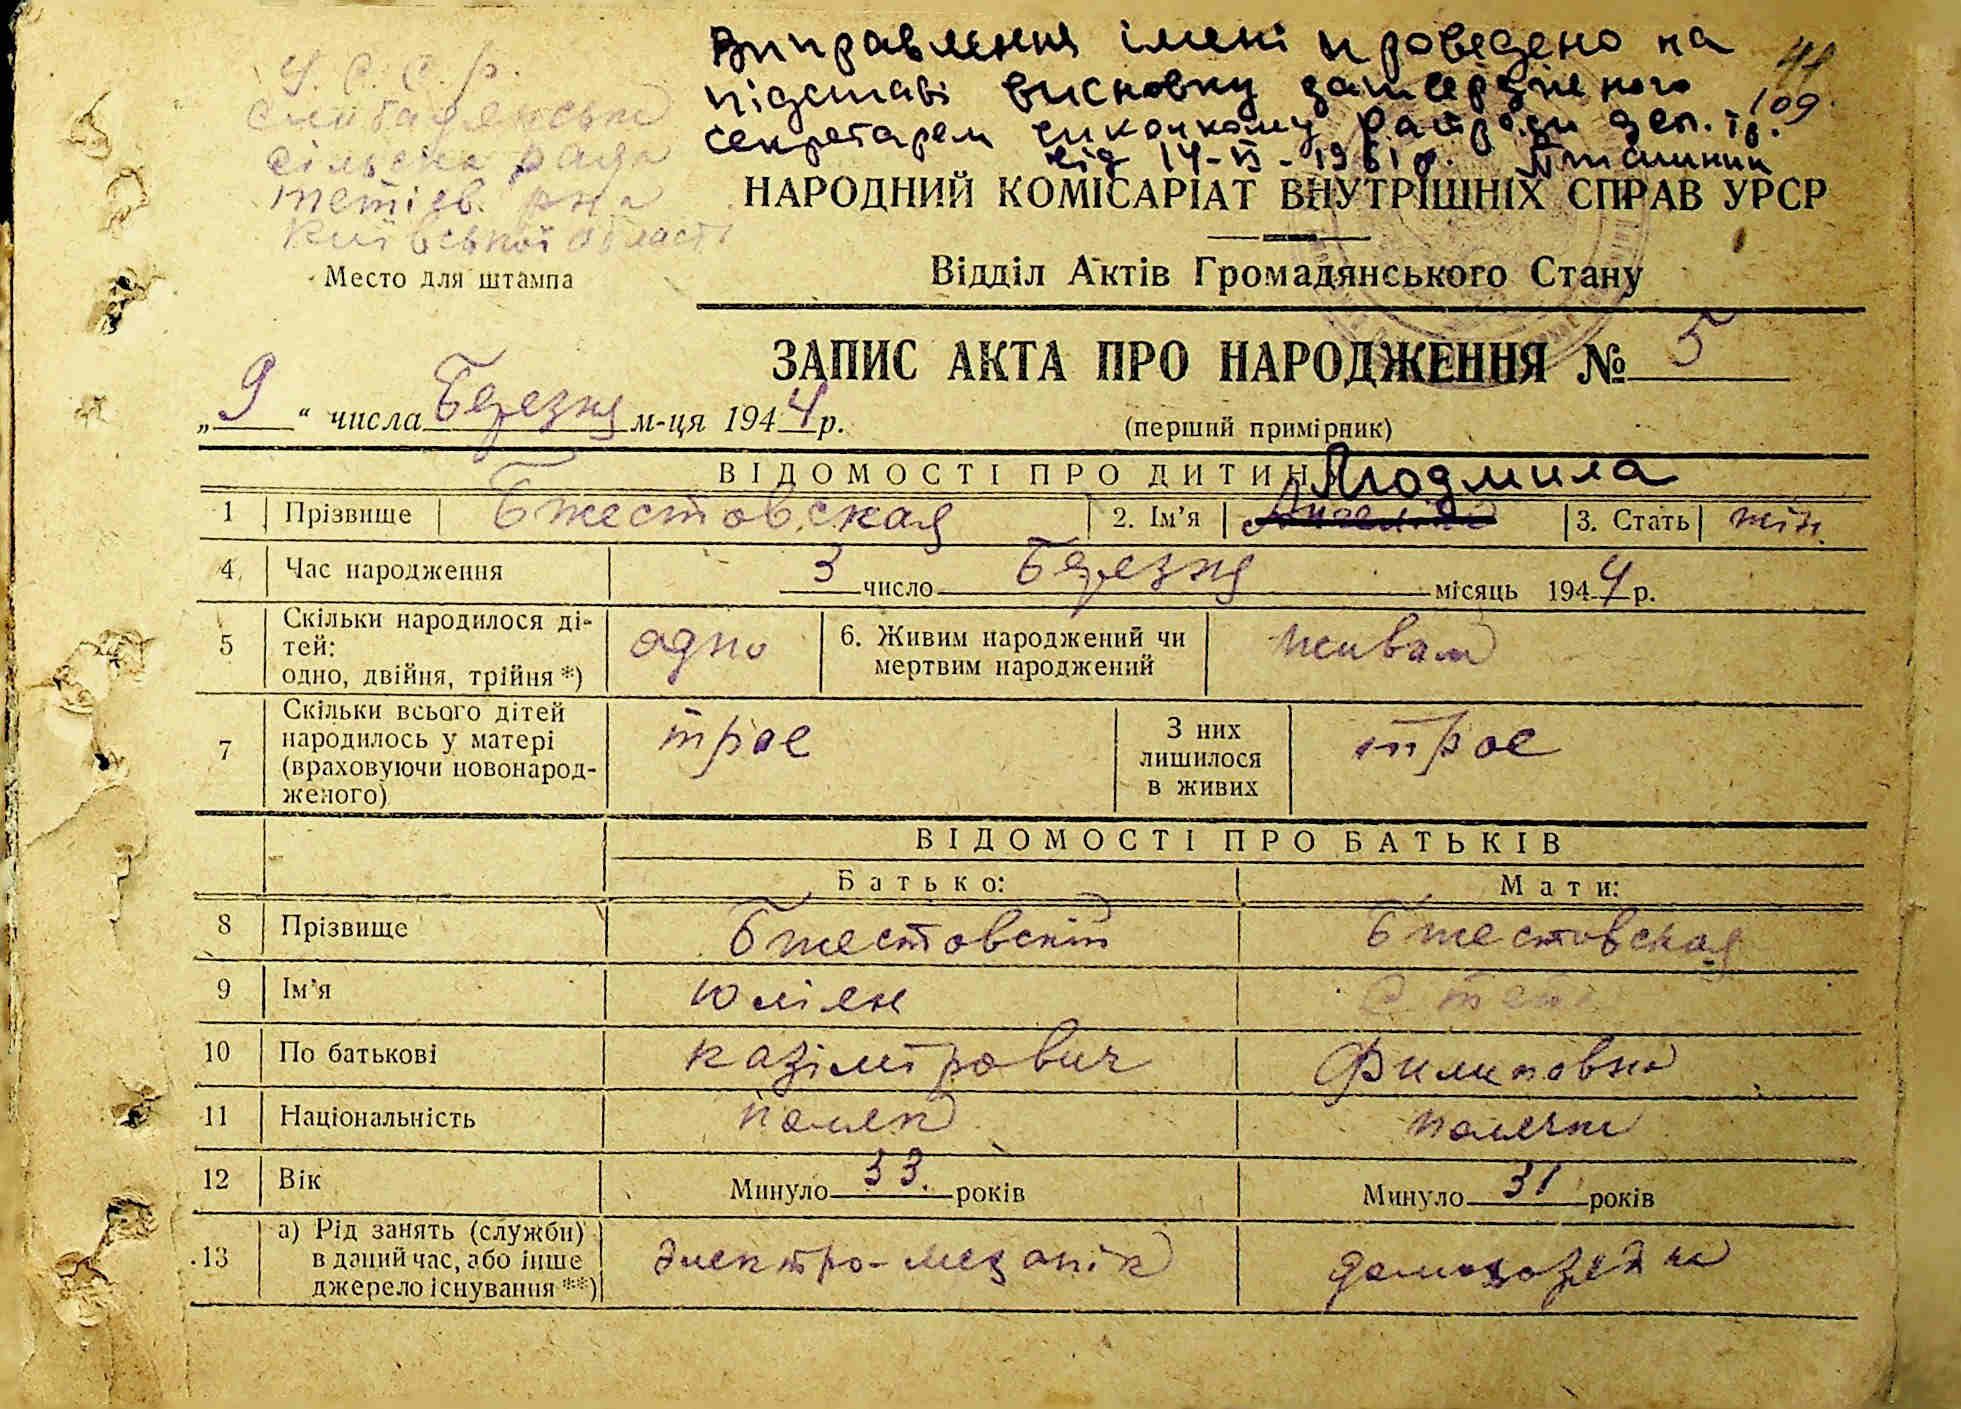 У. С. С. р.
сільська рада
тетіїв. рна
Київської області
Место для штампа
Виправлення імені проведено на
підставі висновку затвердженого
секретарем виконкому райради деп. тр.
від 14-VI-1961 р.
44
109.
НАРОДНИЙ КОМІСАРІАТ ВНУТРІШНІХ СПРАВ УРСР
Відділ Актів Громадянського Стану
ЗАПИС АКТА ПРО НАРОДЖЕННЯ № 5
„ 9 “ числа Березня м-ця 1944 р.
(перший примірник)
ВІДОМОСТІ ПРО ДИТИН
Людмила
1 Прізвище Бжестовская 2. Ім’я 3. Стать жін.
4 Час народження 3 число Березня місяць 1944 р.
5 Скільки народилося ді-
тей:
одно, двійня, трійня *) одно 6. Живим народжений чи
мертвим народжений живам
7 Скільки всього дітей
народилось у матері
(враховуючи новонарод-
женого) троє З них
лишилося
в живих троє
ВІДОМОСТІ ПРО БАТЬКІВ
Батько: Мати:
8 Прізвище Бжестовский Бжестовская
9 Ім’я Юліян
10 По батькові Казімірович Филиповна
11 Національність поляк полячка
12 Вік Минуло 33. років Минуло 31 років
13 а) Рід занять (служби)
в даний час, або інше
джерело існування **) электро-механік домохозяйка